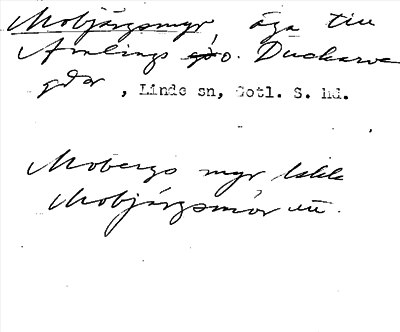 Mobjärgsmyr, äga till
Amlings o. Duckarve
gdar, Linde sn, Gotl. S. hd.
Mobergs myr
Mobjärgsmör